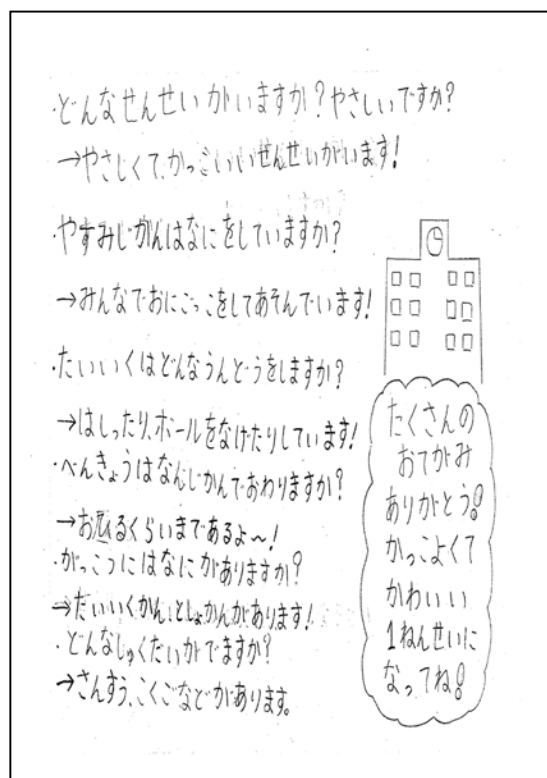 ・どんなせんせいがいますか？やさしいですか？
→やさしくて、かっこいいせんせいがいます！
・やすみじかんはなにをしていますか？
→みんなでおにごっこをしてあそんでいます！
・たいいくはどんなうんどうをしますか？
→はしったり、ボールをなげたりしています！
・べんきょうはなんじかんでおわりますか？
→おひるくらいまであるよ～！
・がっこうにはなにがありますか？
→たいいくかん、としょかんがあります！
・どんなしゅくだいがでますか？
→さんすう、こくごなどがあります。
たくさんの
おてがみ
ありがとう！
かっこよくて
かわいい
1ねんせいに
なってね！